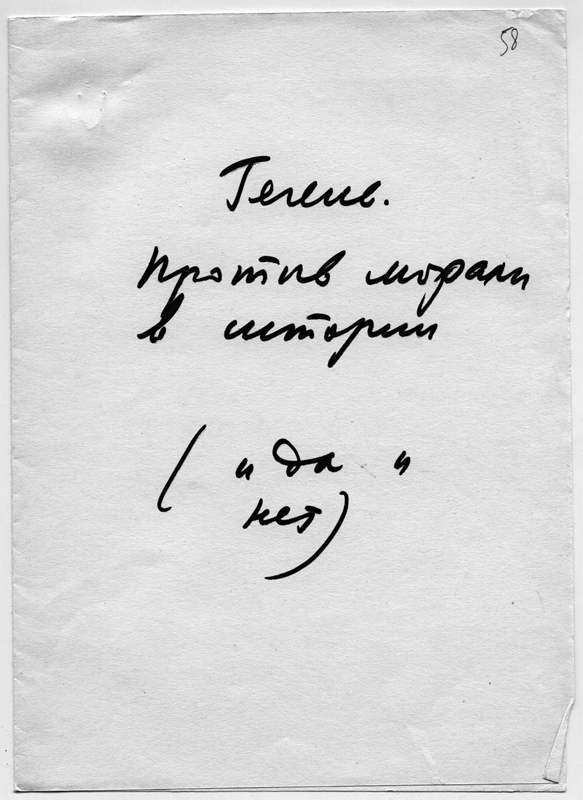 58
Гегель.
Против морали
в истории
( и да и
нет)